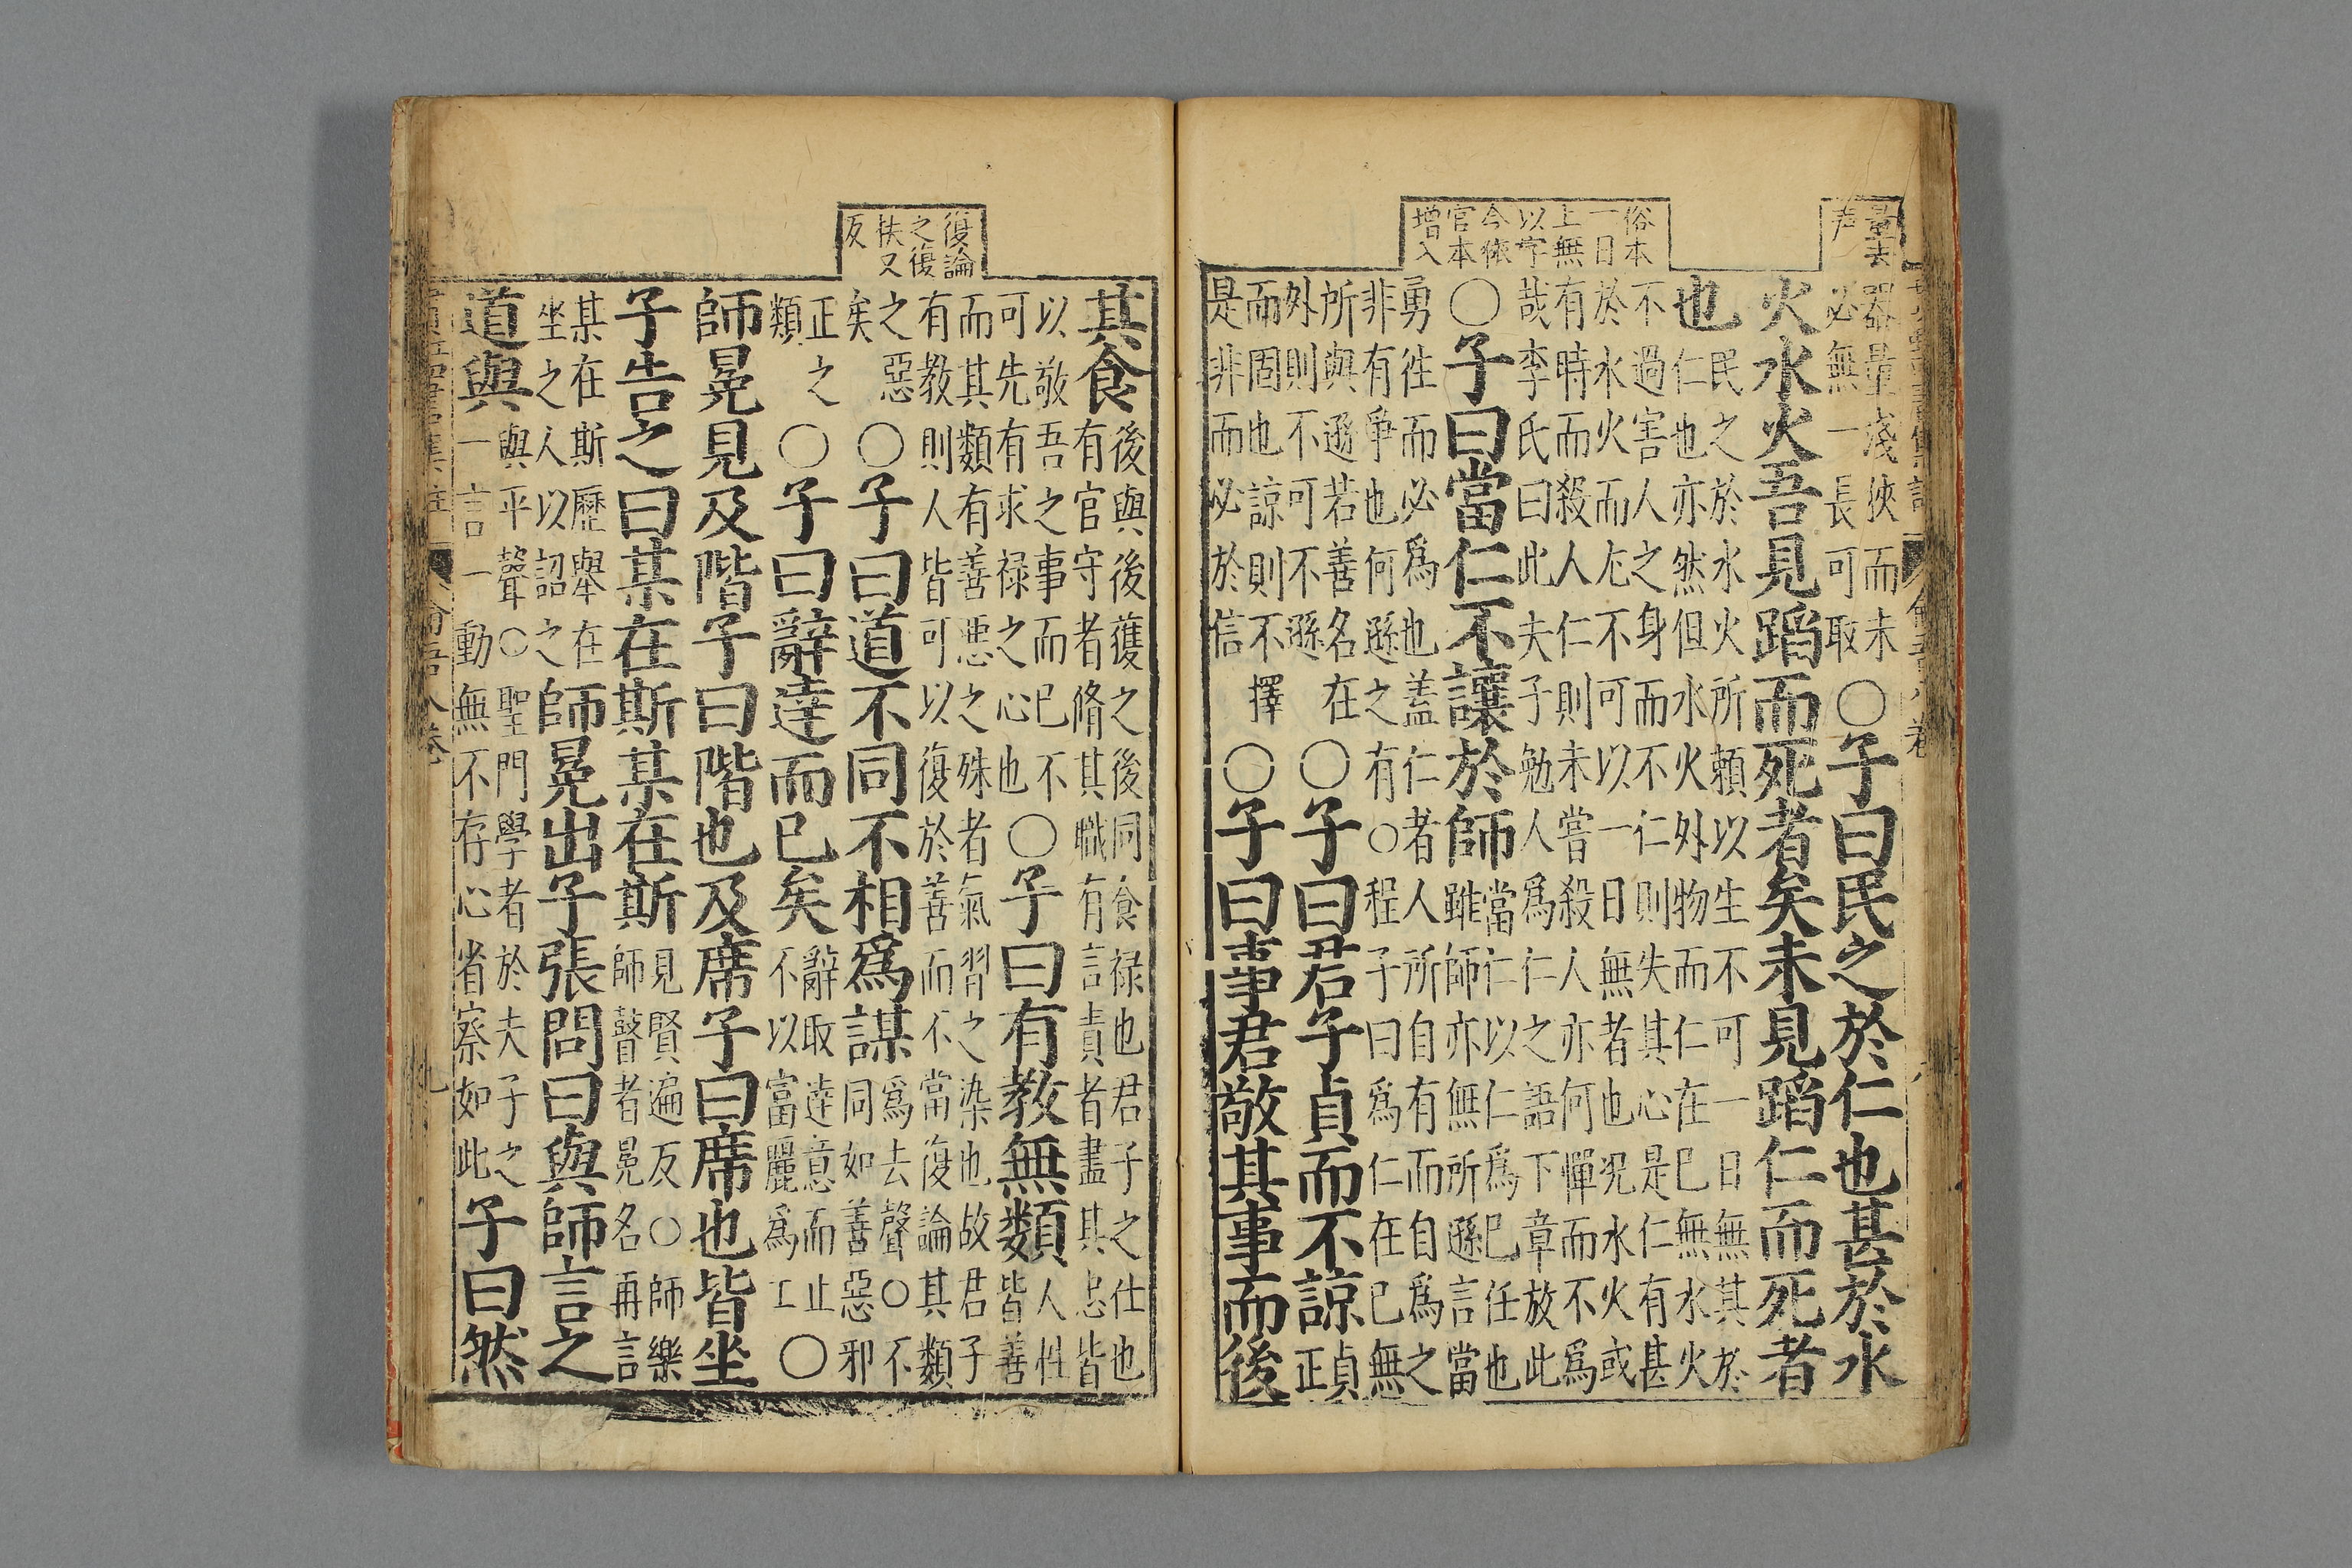 量去
声
俗本
一日
上無
以字
今依
官本
增入
器量淺狹而未
必無一長可取
○子曰民之於仁也甚於水
火水火吾見蹈而死者矣未見蹈仁而死者
也
民之於水火所賴以生不可一日無其於
仁也亦然但水火外物而仁在己無水火
不過害人之身而不仁則失其心是仁有甚
於水火而尤不可以一日無者也況水火或
有時而殺人仁則未嘗殺人亦何憚而不爲
哉李氏曰此夫子勉人爲仁之語下章放此
○子曰當仁不讓於師
當仁以仁爲己任也
雖師亦無所遜言當
勇徃而必爲也蓋仁者人所自有而自爲之
非有爭也何遜之有○程子曰爲仁在己無
所與遜若善名在
外則不可不遜
○子曰君子貞而不諒
貞
正
而固也諒則不擇
是非而必於信
○子曰事君敬其事而後
其食
後與後獲之後同食禄也君子之仕也
有官守者脩其職有言責者盡其忠皆
以敬吾之事而已不
可先有求禄之心也
○子曰有教無類
人性
皆善
而其類有善惡之殊者氣習之染也故君子
有教則人皆可以復於善而不當復論其類
之惡
矣
○子曰道不同不相爲謀
爲去聲○不
同如善惡邪
正之
類
○子曰辭達而已矣
辭取達意而止
不以富麗爲工
○
師冕見及階子曰階也及席子曰席也皆坐
子告之曰某在斯某在斯
見賢遍反○師樂
師瞽者冕名再言
某在斯歷舉在
坐之人以詔之
師冕出子張問曰與師言之
道與
與平聲○聖門學者於夫子之
一言一動無不存心省察如此
子曰然
復論
之復
扶又
反
九